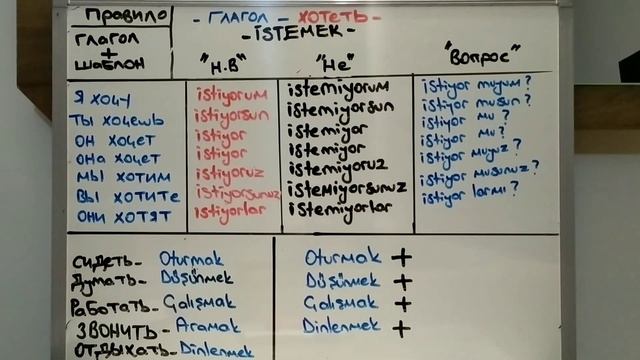 Правило
ГЛАГОЛ
+
ШАБЛОН
- ГЛАГОЛ - ХОТЕТЬ -
- İSTEMEK -
"Н.В" "Не" "Вопрос"
Я ХОЧУ istiyorum istemiyorum istiyor muyum?
ТЫ ХОЧЕШЬ istiyorsun istemiyorsun istiyor musun?
ОН ХОЧЕТ istiyor istemiyor istiyor mu?
ОНА ХОЧЕТ istiyor istemiyor istiyor mu?
МЫ ХОТИМ istiyoruz istemiyoruz istiyor muyuz?
ВЫ ХОТИТЕ istiyorsunuz istemiyorsunuz istiyor musunuz?
ОНИ ХОТЯТ istiyorlar istemiyorlar istiyor larmı?
СИДЕТЬ- Oturmak Oturmak +
Думать- Düşünmek Düşünmek +
Работать- Çalışmak Çalışmak +
ЗВОНИТЬ- Aramak Dinlenmek +
ОТДЫХАТЬ- Dinlenmek